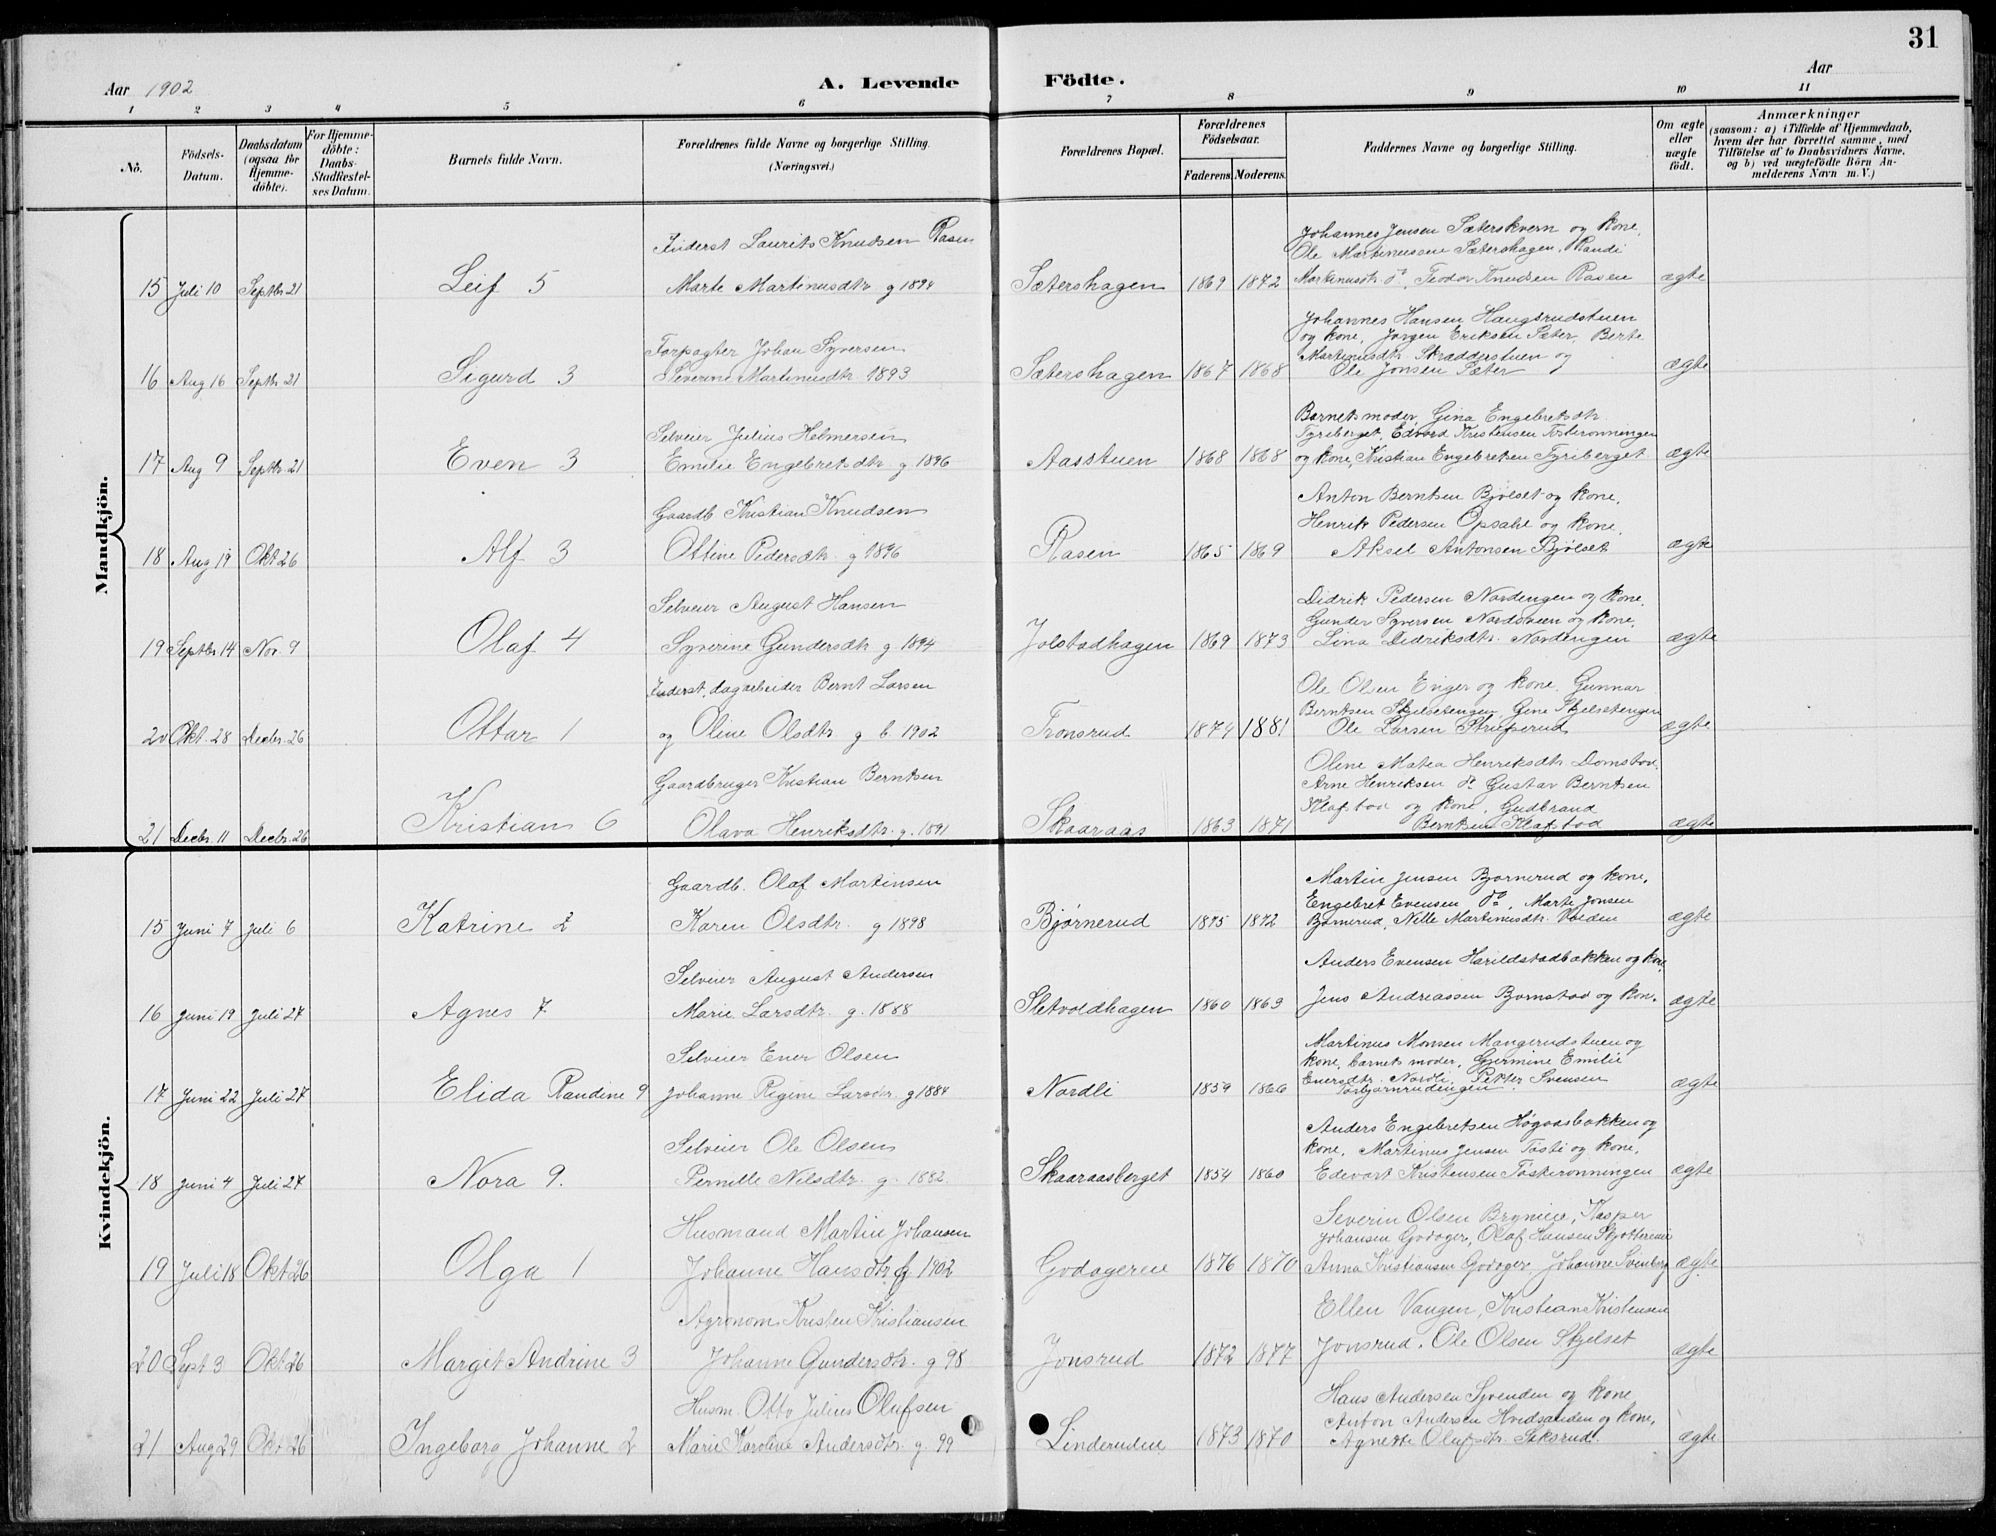 31
Aar 1902
A. Levende Födte.
Aar
1 2 3 4 5 6 7 8 9 10 11
No.
Födsels-Datum.
Daabsdatum (ogsaa for Hjemme-döbte).
For Hjemme-döbte: Daabs-Stadfæstel-ses Datum.
Barnets fulde Navn.
Forældrenes fulde Navne og borgerlige Stilling. (Næringsvei.)
Forældrenes Bopæl.
Forældrenes Födselsaar.
Faderens. Moderens.
Faddernes Navne og borgerlige Stilling.
Om ægte eller uægte födt.
Anmærkninger
(saasom: a) i Tilfælde af Hjemmedaab, hvem der har forrettet samme, med Tilföielse af to Daabsvidners Navne, og b) ved uægtefödte Börn Anmelderens Navn m. V.)
Mandkjön.
Inderst Laurits Knudsen Rasen
Johannes Jensen Sæterskvern og kone,
Ole Martinussene Sætershagen, Randi
15 Juli 10 Septbr 21 Leif 5 Marte Martinusdtr g 1894 Sætershagen 1869 1872 Martinusdtr do, Teodor Knudsen Rasen ægte
Johannes Hansen Haugsrudstuen
Forpagter Johan Syversen og kone, Jørgen Eriksen Sæter, Berte
Martinusdtr. Skrædderstuen og
16 Aug 16 Septbr 21 Sigurd 3 Severine Martinusdtr. 1893 Sætershagen 1867 1868 Ole Jonsen Sæter ægte
Barnets moder, Gina Engebretsdtr
Selveier Julius Helmersen Tyriberget, Edvard Kristensen Tosterønningen
17 Aug 9 Septbr 21 Even 3 Emilie Engebretsdtr g 1896 Aasstuen 1868 1868 og kone, Kristian Engebretsen Tyriberget ægte
Anton Berntsen Bjølset og kone,
Gaardb Kristian Knudsen Henrik Pedersen Opsahl og kone,
18 Aug 19 Okt 26 Alf 3 Ottine Pedersdtr. g 1896 Rasen 1865 1869 Aksel Antonsen Bjølset ægte
Didrik Pedersen Nordengen og kone,
Selveier August Hansen Gunder Syversen Nordstuen og kone,
19 Septbr 14 Nov. 9 Olaf 4 Syverine Gundersdtr g 1894 Jolstadhagen 1869 1873 Lina Didriksdtr. Nordengen ægte
Ole Olsen Enger og kone, Gunnar
Inderst, dagarbeider Bernt Larsen Berntsen Skjelsetengen Gine Skjelsetengen
20 Okt. 28 Decbr. 26 Ottar 1 og Oline Olsdtr g 6 1902 Tronsrud 1874 1881 Ole Larsen ægte
Oline Matea Henriksdtr
Gaardbruger Kristian Berntsen Arne Henriksen do Gustav Berntsen
Klafstad og kone, Gudbrand
21 Decbr. 11 Decbr. 26 Kristian 6 Olava Henriksdtr. g. 1891 Skaaraas 1863 1871 Berntsen Klafstad ægte
Kvindekjön.
Gaardb. Olaf Martinsen Martin Jensen Bjørnerud og kone,
Engebret Evensen do, Marte Jonsen
15 Juni 7 Juli 6 Katrine 2 Karen Olsdtr. g 1898 Bjørnerud 1875 1872 Bjørnerud, Nelle Martinusdtr. ægte
Selveier August Andersen Anders Evensen Harildstadbakken og kone,
16 Juni 19 Juli 27 Agnes 7 Marie Larsdtr. g. 1888 Sletvoldhagen 1860 1863 Jens Andreassen Bjørnstad og kone ægte
Martinus Monsen Mangerudstuen og
Selveier Ener Olsen kone, barnets moder, Gjermine Emilie
17 Juni 22 Juli 27 Elida Randine 9 Johanne Regine Larsdtr. g 1884 Nordli 1859 1866 Enersdtr. Nordli, Petter Svensen Torbjørnrudengen ægte
Anders Engebretsen Høgaasbakken og
Selveier Ole Olsen kone, Martinus Jensen Toste og kone,
18 Juni 4 Juli 27 Nora 9. Pernille Nilsdtr. g. 1882 Skaaraasberget 1854 1860 Edevart Kristensen Tosterønningen ægte
Severin Olsen Bryneie, Kasper
Husmand Martin Johansen Johansen Godager, Olaf Hansen Skjottereie
19 Juli 18 Okt 26 Olga 1 Johanne Hansdtr g 1902 Godagereie 1876 1870 Anna Kristiansen Godager Johanne ægte
Agronom Kristen Kristiansen Ellen Vangen, Kristian Kristensen
20 Sept 3 Okt 26 Margit Andrine 3 Johanne Gundersdtr. g 98 Jonsrud 1872 1877 Jonsrud, Ole Olsen Skjelset ægte
Husm. Otto Julius Olufsen Hans Andersen Syvenden og kone
Anton Andersen Hvidsanden og kone,
21 Aug 29 Okt 26 Ingeborg Johanne 2 Marie Karoline Andersdtr. g. 99 Linderudeie 1873 1870 Agnette Olufsdtr. Seksrud. ægte